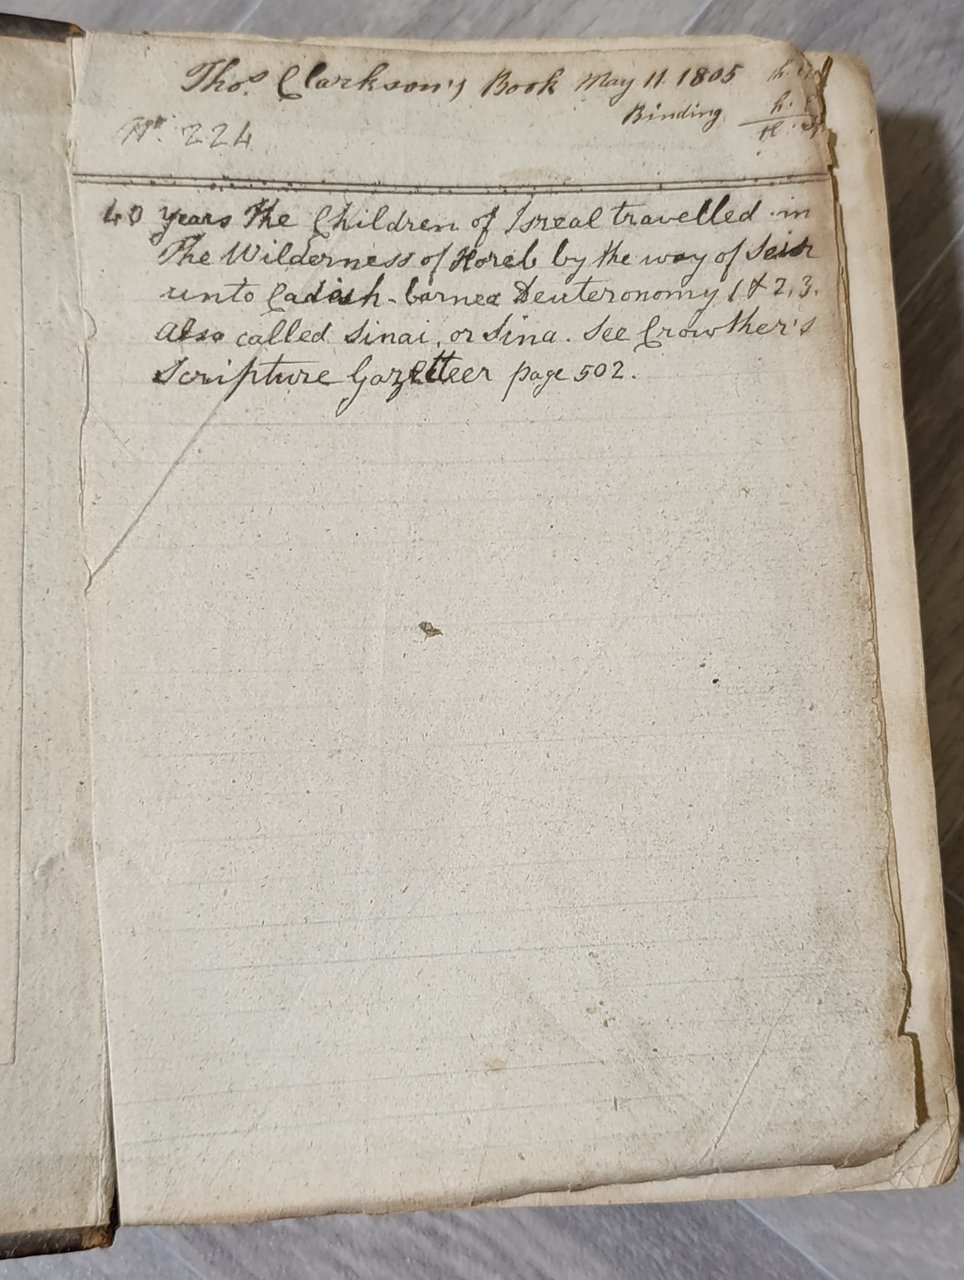 Thos. Clarkson's Book May 11 1805
Binding
No. 224
40 years The Children of Isreal travelled in
The Wilderness of Horeb by the way of Seir
unto Cadish-barnea Deuteronomy 1 & 2, 3.
also called Sinai, or Sina. See Crowther's
Scripture Gazetteer page 502.